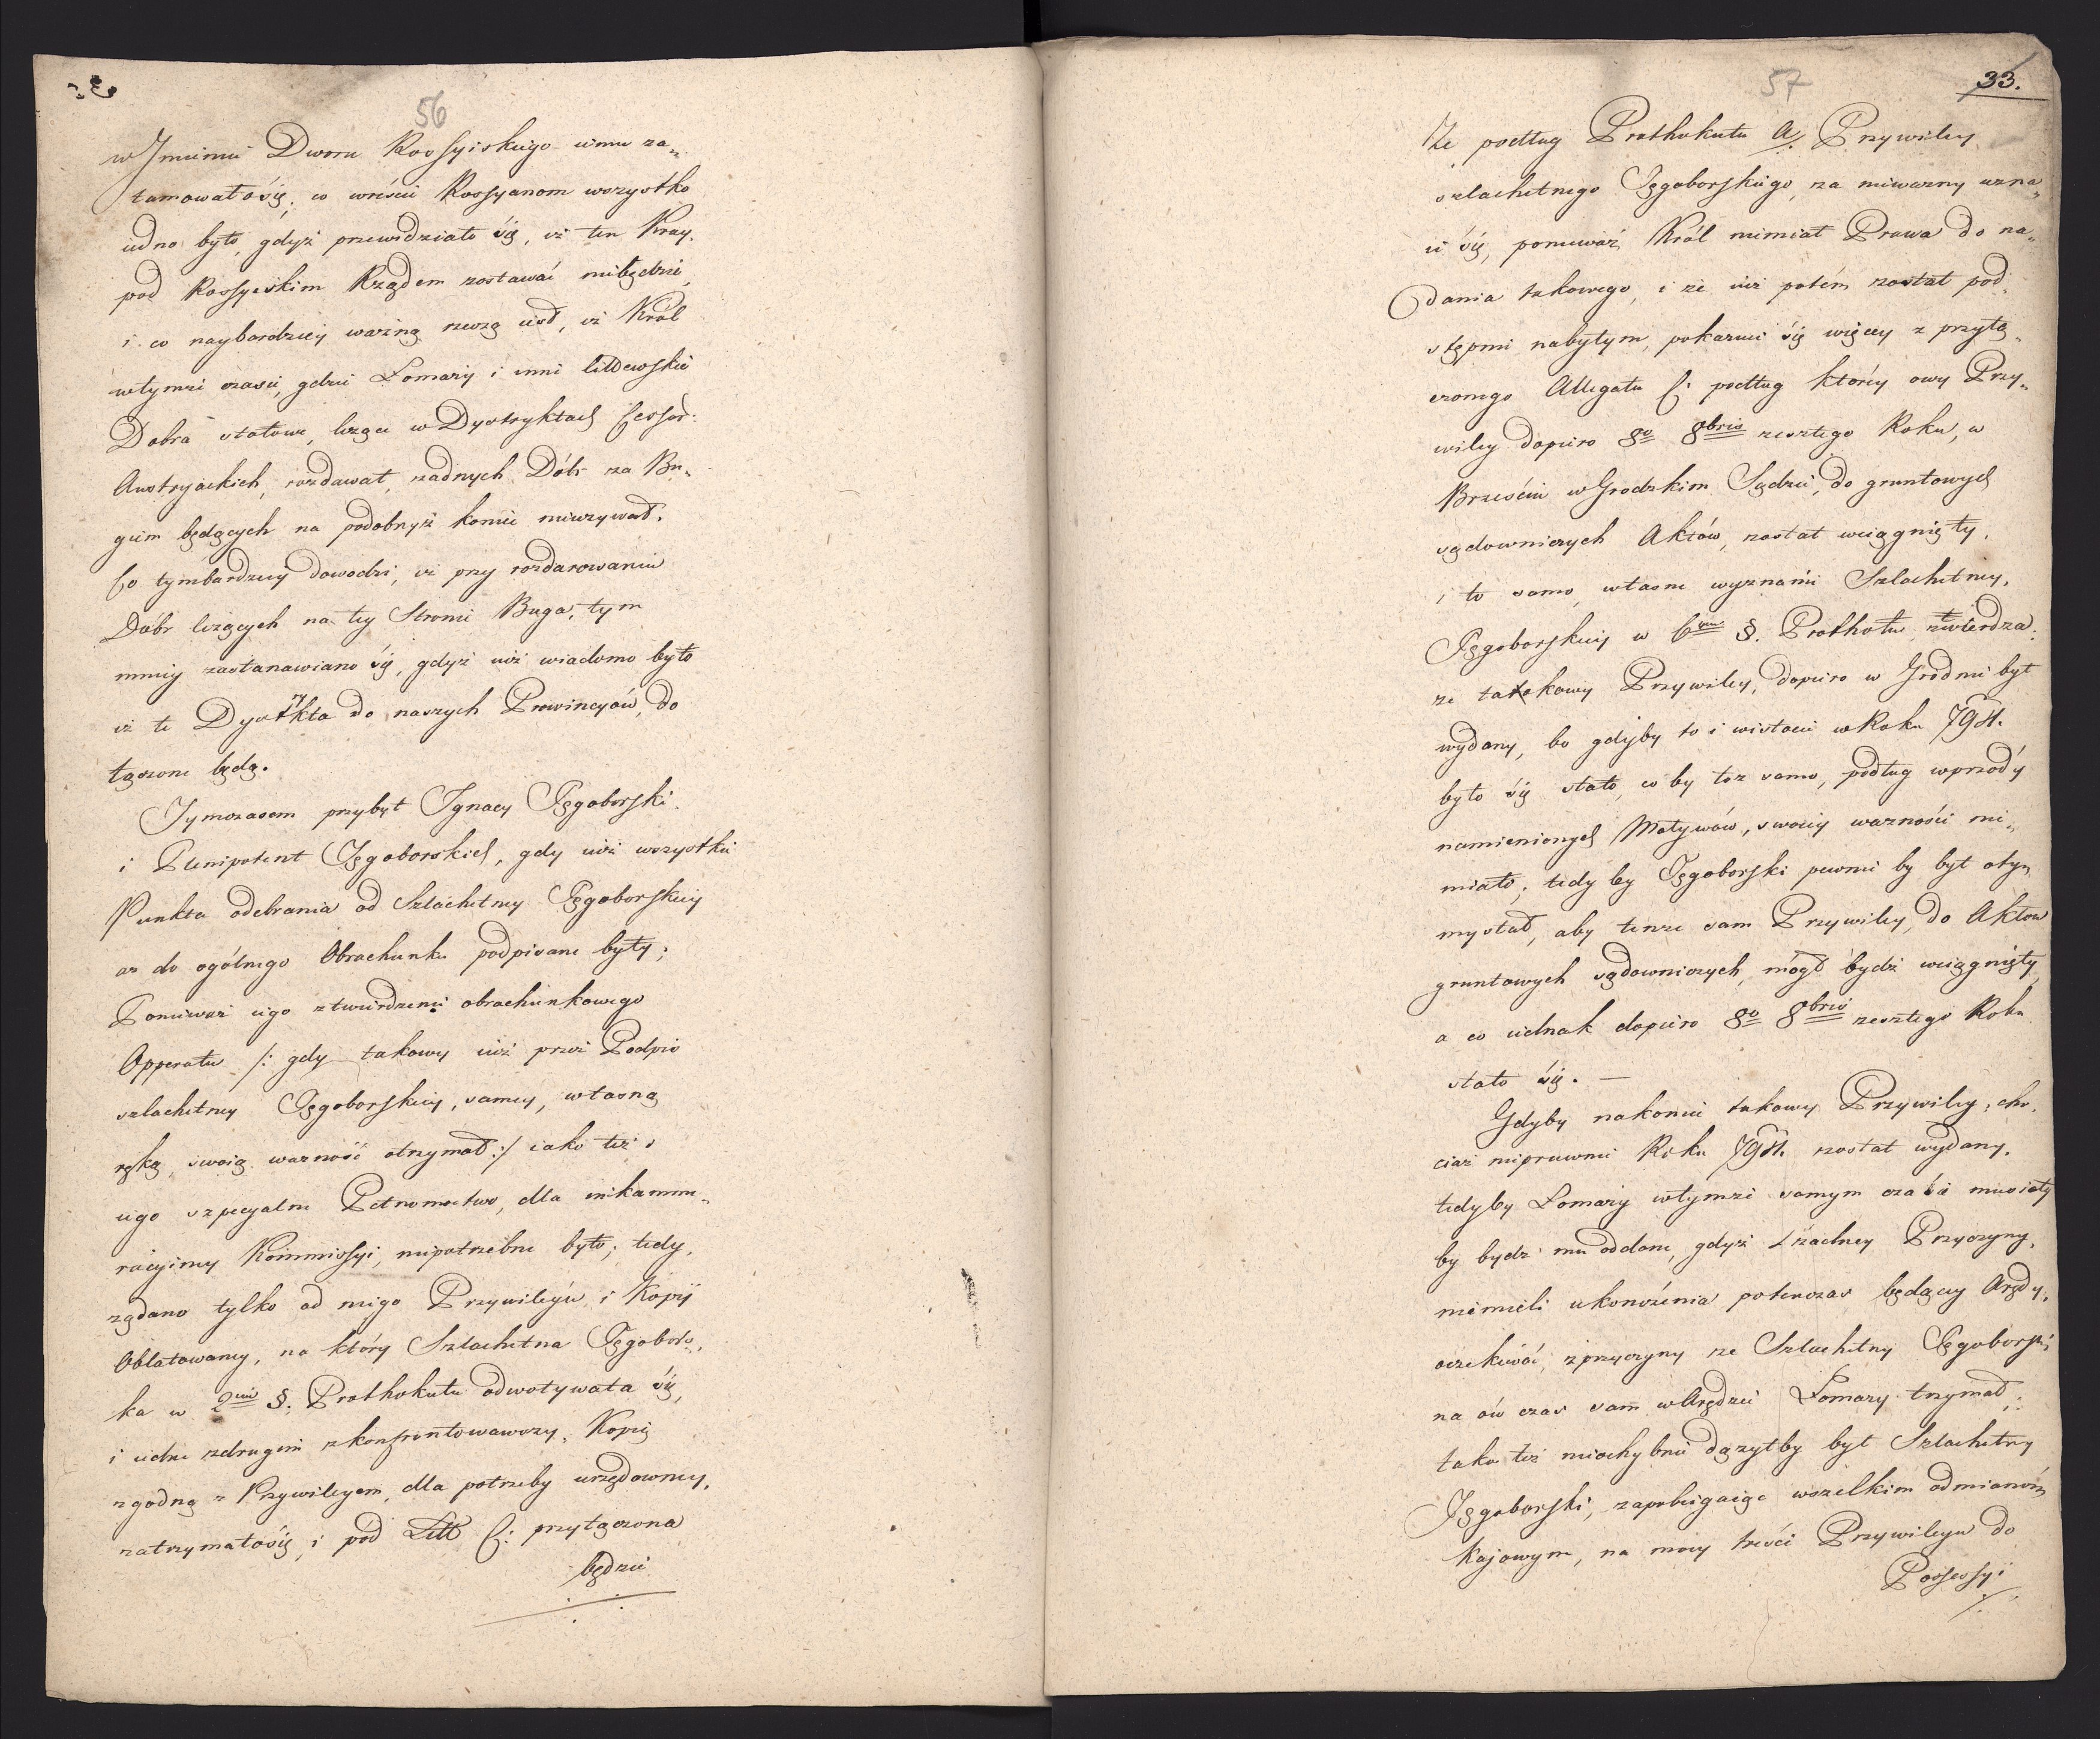 56
w Jmieniu Dworu Rossyiskiego iemu za„
tamowało się, co wreście Rossyanom wszystko
iedno było, gdyż przewidziało się, iż ten Kray
pod Rossyiskim Rządem zostawać niebędzie,
i co naybardziey ważną rzeczą iest, iż Król
wtymże czasie, gdzie Łomazy i inne littewskie
Dobra stołowe, leżące w Dystryktach Cessar:
Austryackich, rozdawał, żadnych Dóbr za Bu„
giem będących na podobnyż koniec nieużywał.
Co tymbardziey dowodzi, iż przy rozdarowaniu
Dóbr leżących na tey Stronie Buga, tym
mniey zastanawiano się, gdyż iuż wiadomo było
iż te Dystrykta do naszych Prowincyów, do
łączone będą.
Tymczasem przybył Ignacy Tęgoborski
i Plenipotent Tęgoborskich, gdy iuż wszystkie
Punkta odebrania od Szlachetney Tęgoborskiey
az do ogólnego Obrachunku podpisane były;
Ponieważ iego ztwierdzenie obrachunkowego
Opperatu /: gdy takowy iuż przez Podpis
szlachetney Tęgoborskiey, samey, własną
ręką, swoią ważność otrzymał :/ iako też i
iego szpecyalne Pełnomoctwo, dla inkamme„
racyiney Kommissyi, niepotrzebne było; tedy,
żądano tylko od niego Przywileyu i Kopij
Oblatowaney, na który Szlachetna Tęgobors„
ka w 2im §. Prothokułu odwoływała się,
i iedne zdrugim zkonfrontowawszy, Kopią
zgodną z Przywileyem, dla potrzeby urzędowney,
zatrzymało się, i pod Litt C: przyłączona
będzie
57
33.
Ze podług Prothokułu A. Przywiley
szlachetnego Tęgoborskiego, za nieważny uzna„
ie się, ponieważ Król niemiał Prawa do na„
dania takowego, i że iuż potém został pod„
stępnie nabytym, pokazuie się więcey z przyłą„
czonego Allegatu C: podług którey owy Przy„
wiley dopiero 8o 8bris zeszłego Roku, w
Brześciu w Grodzkim Sądzie, do gruntowych
sądowniczych Aktów, został wciągnięty,
i to samo, własne wyznanie Szlachetney,
Tęgoborskiey w 6ym §. Prothołu ztwierdza:
ze takowy Przywiley, dopiero w Grodnie był
wydany, bo gdyby to i wistocie w Roku 794.
było się stało, co by toz samo, podług wprzódy
namienionych Motywów, swoiey ważności nie„
miało; tedy by Tęgoborski pewnie by był otym
myslał, aby tenże sam Przywiley, do Aktow
gruntowych sądowniczych, mógł bydź wciągnięty,
a co iednak dopiero 8o 8bris zeszłego Roku
stało się. —
Gdyby nakoniec takowy Przywiley, cho„
ciaż nieprawnie Roku 794. został wydany,
tedyby Łomazy wtymże samym czasie musiały
by bydź mu oddane, gdyż z żadney Przyczyny,
niemieli ukonczenia potenczas będącey Arędy,
oczekiwać, z przyczyny że Szlachetny Tęgoborski
na ów czas sam w Arędzie Łomazy trzymał;
tako też niechybnie dążyłby był Szlachetny
Tęgoborski, zapobiegaiąc wszelkim odmianóm
Krajowym, na mocy treści Przywileyu do
Possessyi